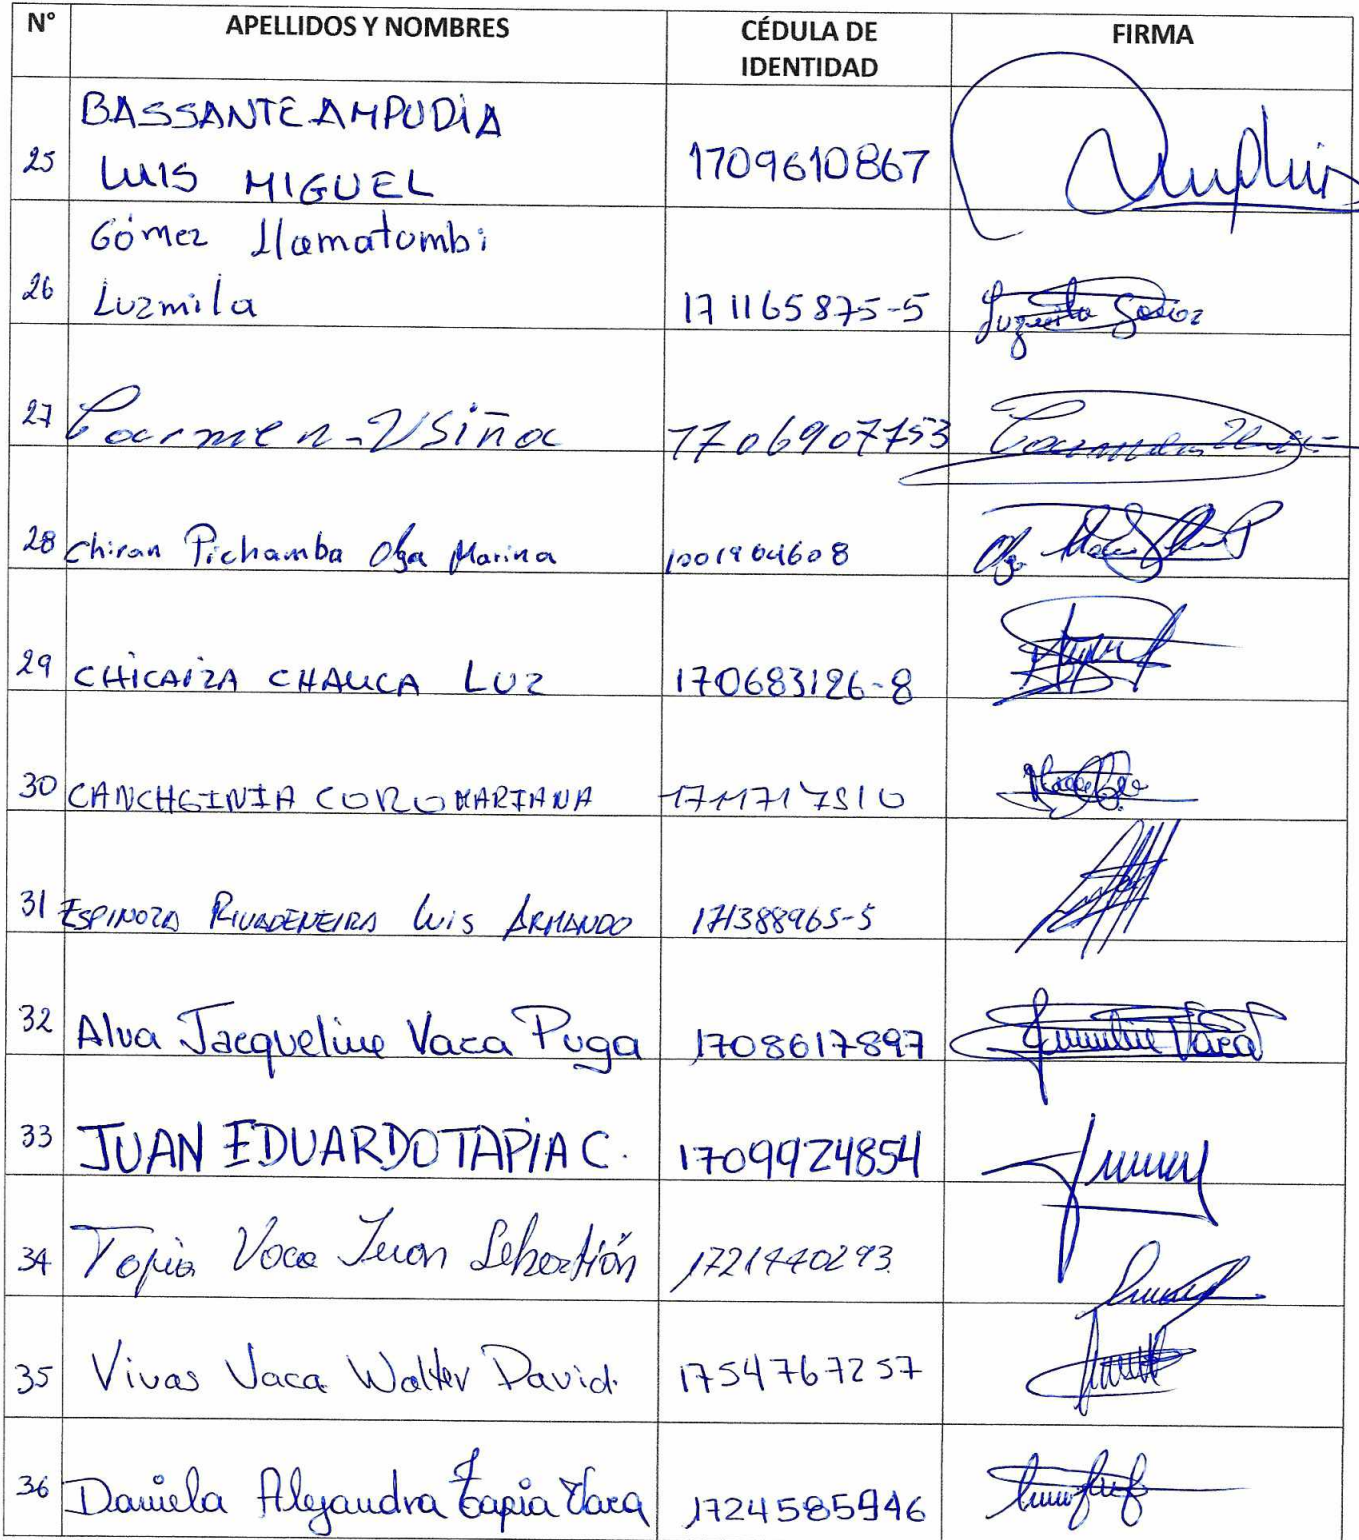 N° APELLIDOS Y NOMBRES CÉDULA DE FIRMA
IDENTIDAD
BASSANTE AMPUDIA
25 LUIS MIGUEL 1709610867
Gómez Llamatumbi
26 Luzmila 171165875-5 Luzmila Gómez
27 Carmen Usiña 1706907753
28 Chiran Pichamba Olga Marina 1001904608
29 CHICAIZA CHAUCA LUZ 170683126-8
30 CANCHGINIA CORO MARIANA 1711717510
31 ESPINOZA RIVADENEIRA LUIS ARMANDO 171388965-5
32 Alva Jacqueline Vaca Puga 1708617897 Vaca
33 JUAN EDUARDO TAPIA C. 1709924854
34 Tapia Vaca Juan Sebastián 1721440293
35 Vivas Vaca Walter David. 1754767257
36 Daniela Alejandra Tapia Vaca 1724585946